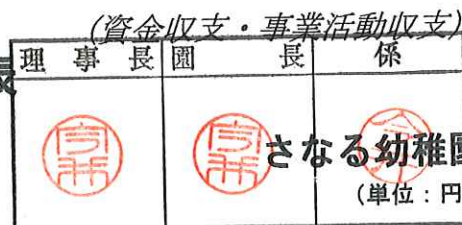 (資金収支・事業活動収支)
理事長 園長 係
さなる幼稚園
(単位:円